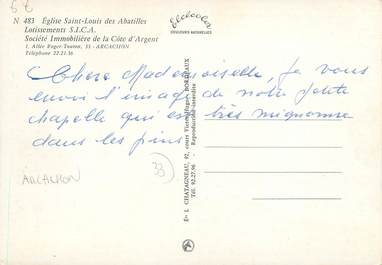 5 €
N 483 Église Saint-Louis des Abatilles
Lotissements S.I.C.A.
Société Immobilière de la Côte d'Argent
1, Allée Roger-Touton, 33 - ARCACHON
Téléphone 22.21-36
Elcécolor
COULEURS NATURELLES
Chère Mademoiselle, Je vous
envoi l'image de notre petite
chapelle qui est très mignonne
dans les pins
33
ARCACHON
Éts I. CHATAGNEAU, 92, cours Victor-Hugo - BORDEAUX
Tél. 92.27-96 - Reproduction interdite